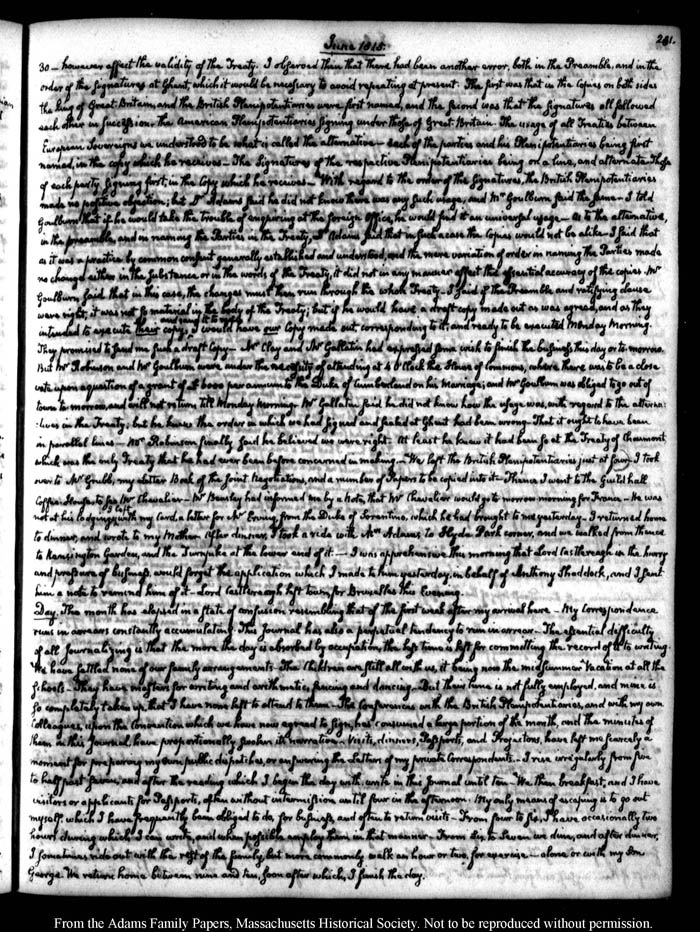 June 1815.
281.
30 — however affect the validity of the Treaty. I observed then that there had been another error, both in the Preamble, and in the
order of the Signatures at Ghent, which it would be necessary to avoid repeating at present. The first was that in the Copies on both sides
the King of Great-Britain and the British Plenipotentiaries were first named, and the second was that the Signatures all followed
each other in succession. the American Plenipotentiaries signing under those of Great Britain. The usage of all Treaties between
European Sovereigns we understood to be what is called the alternative — each of the parties and his Plenipotentiaries being first
named, in the copy which he receives — The Signatures of the respective Plenipotentiaries being on a line, and alternate. Those
of each party signing first, in the Copy which he receives — With regard to the order of the Signatures, the British Plenipotentiaries
made no positive objection; but Dr Adams said he did not know there was any such usage, and Mr Goulburn said the same — I told
Goulburn that if he would take the trouble of enquiring at the foreign Office, he would find it an universal usage — As to the alternative,
in the preamble, and in naming the Parties in the Treaty, Dr Adams said that in such a case the Copies would not be alike — I said that
as it was a practice by common consent generally established and understood, and the mere variation of order in naming the Parties made
no change either in the substance or in the words of the Treaty, it did not in any manner affect the essential accuracy of the copies. Mr
Goulburn said that in this case, the changes must then run through the whole Treaty — I said if the Preamble and ratifying clause
were right, it was not so material in the body of the Treaty; but if he would have a draft copy made out as was agreed, and as they
intended to execute their copy, and send it to me, I would have our Copy made out, corresponding to it, and ready to be executed Monday Morning.
They promised to send me such a draft Copy — Mr Clay and Mr Gallatin had expressed some wish to finish the business this day or to-morrow.
But Mr Robinson and Mr Goulburn were under the necessity of attending at 4 O'Clock the House of Commons, where there was to be a close
vote upon a question of a grant of £6000 per annum to the Duke of Cumberland on his Marriage; and Mr Goulburn was obliged to go out of
town to-morrow, and will not return till Monday Morning. Mr Gallatin said he did not know how the usage was, with regard to the alterna-
-tives in the Treaty; but he knew the order in which we had signed and sealed at Ghent had been wrong — That it ought to have been
in parallel lines — Mr Robinson finally said he believed we were right. At least he knew it had been so at the Treaty of Chaumont
which was the only Treaty that he had ever been before concerned in making. — We left the British Plenipotentiaries just at four. I took
over to Mr Grubb, my letter Book of the Joint Negotiations, and a number of Papers to be copied into it — Thence I went to the Guildhall
Coffee-House for Mr Chevalier — Mr Beasley had informed me by a Note, that Mr Chevalier would go to-morrow morning for France — He was
not at his lodgings. I left with my Card, a letter for Mr Erving, from the Duke of Sorentino, which he had brought to me yesterday — I returned home
to dinner, and wrote to my Mother. After dinner, I took a ride with Mrs Adams to Hyde Park corner, and we walked from thence
to Kensington Garden, and the Turnpike at the lower end of it. — I was apprehensive this morning that Lord Castlereagh in the hurry
and pressure of business, would forget the application which I made to him yesterday, in behalf of Anthony Shaddock, and I sent
him a note to remind him of it — Lord Castlereagh left town, for Bruxelles this Evening.
Day. The month has elapsed in a state of confusion resembling that of the first week after my arrival here — My Correspondence
runs in arrears constantly accumulating. This Journal has also a perpetual tendency to run in arrear. The essential difficulty
of all Journalizing is that the more the day is absorbed by occupation, the less time is left for committing the record of it to writing.
We have settled none of our family arrangements. The Children are still all with us, it being now the midsummer Vacation at all the
Schools — They have masters for writing and arithmetic, fencing and dancing — But their time is not fully employed, and mine is
so completely taken up, that I have none left to attend to them. — The Conferences with the British Plenipotentiaries, and with my own
Colleagues, upon the Convention which we have now agreed to sign, has consumed a large portion of the month, and the minutes of
them in this Journal, have proportionally swollen its narrative — Visits, dinners, Passports, and Projectors, have left me scarcely a
moment for preparing my own public dispatches, or answering the letters of my private Correspondents. — I rise irregularly from five
to half past seven, and after the reading which I begin the day with, write in this Journal until ten — We then breakfast, and I have
visitors or applicants for Passports, often without intermission until four in the afternoon. My only means of escaping is to go out
myself. which I have frequently been obliged to do, for business, and often to return visits — From four to six, I have occasionally two
hours during which I can write, and when possible employ them in that manner — From six to seven we dine, and after dinner,
I sometimes ride out with the rest of the family, but more commonly walk an hour or two, for exercise — alone or with my Son
George. We return home between nine and ten, soon after which, I finish the day.
From the Adams Family Papers, Massachusetts Historical Society. Not to be reproduced without permission.